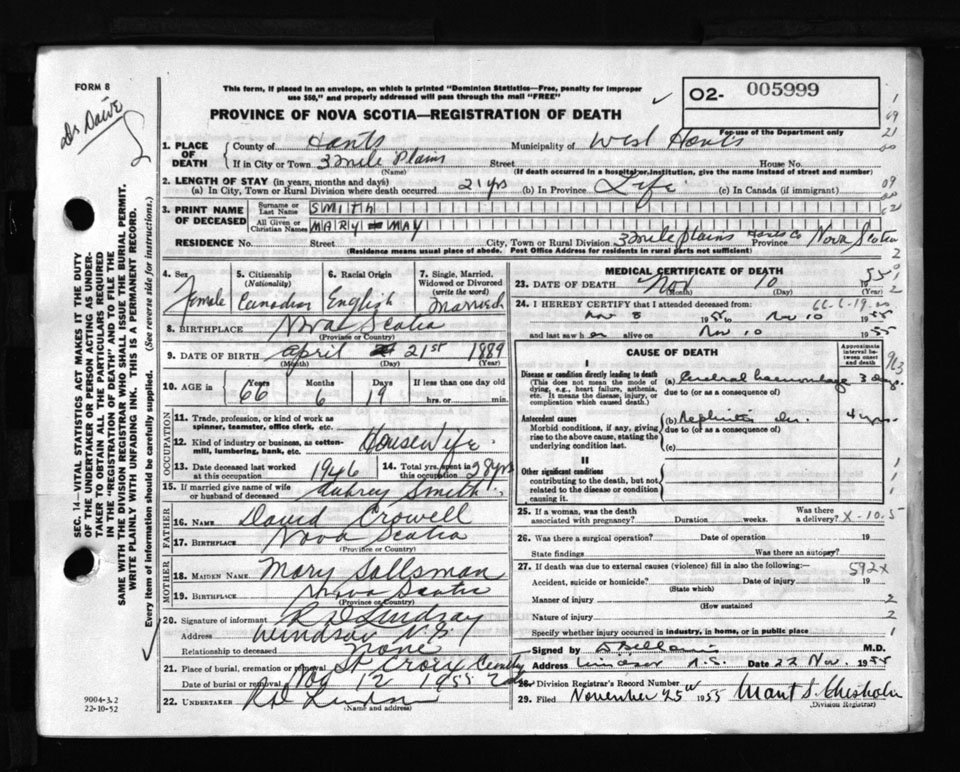 FORM 8
Dr Davie
This form, if placed in an envelope, on which is printed "Dominion Statistics—Free, penalty for improper
use $50," and properly addressed will pass through the mail "FREE"
O2- 005999
For use of the Department only
PROVINCE OF NOVA SCOTIA—REGISTRATION OF DEATH
1. PLACE OF DEATH
County of Hants Municipality of West Hants
If in City or Town 3 mile Plains Street House No.
(Name) (If death occurred in a hospital or institution, give the name instead of street and number)
2. LENGTH OF STAY (in years, months and days)
(a) In City, Town or Rural Division where death occurred 21 yrs (b) In Province Life (c) In Canada (if immigrant)
3. PRINT NAME OF DECEASED
Surname or Last Name SMITH
All Given or Christian Names MARY MAY
RESIDENCE No. Street City, Town or Rural Division 3 mile plains Hants Co Province Nova Scotia
(Residence means usual place of abode. Post Office Address for residents in rural parts not sufficient)
4. Sex Female
5. Citizenship (Nationality) Canadian
6. Racial Origin English
7. Single, Married, Widowed or Divorced (write the word) Married
8. BIRTHPLACE Nova Scotia
(Province or Country)
9. DATE OF BIRTH April 21st 1889
(Month) (Day) (Year)
10. AGE in Years 66 Months 6 Days 19 If less than one day old
hrs. or min.
OCCUPATION
11. Trade, profession, or kind of work as
spinner, teamster, office clerk, etc.
12. Kind of industry or business, as cotton-
mill, lumbering, bank, etc. Housewife
13. Date deceased last worked at this occupation 1946 14. Total yrs. spent in this occupation 28 yrs
15. If married give name of wife
or husband of deceased Aubrey Smith
FATHER
16. NAME David Crowell
17. BIRTHPLACE Nova Scotia
(Province or Country)
MOTHER
18. MAIDEN NAME Mary Sallsman
19. BIRTHPLACE Nova Scotia
(Province or Country)
20. Signature of informant R D Lindsay
Address Windsor N.S.
Relationship to deceased none
21. Place of burial, cremation or removal St Croix Cemtry
Date of burial or removal Nov 12 1955
22. UNDERTAKER
(Name and address)
MEDICAL CERTIFICATE OF DEATH
23. DATE OF DEATH Nov 10 1955
(Month) (Day)
24. I HEREBY CERTIFY that I attended deceased from: 66-6-19
Nov 8 1955 to Nov 10 1955
and last saw h er alive on Nov 10 1955
CAUSE OF DEATH
Approximate interval between onset and death
I
Disease or condition directly leading to death
(This does not mean the mode of dying, e.g., heart failure, asthenia, etc. It means the disease, injury, or complication which caused death.)
(a) Cerebral haemorrhage 3 days
due to (or as a consequence of)
Antecedent causes
Morbid conditions, if any, giving rise to the above cause, stating the underlying condition last.
(b) Nephritis chr. 4 yrs
due to (or as a consequence of)
(c)
II
Other significant conditions
contributing to the death, but not related to the disease or condition causing it.
25. If a woman, was the death
associated with pregnancy? Duration weeks. Was there a delivery? X-10.5
26. Was there a surgical operation? Date of operation 19
State findings Was there an autopsy?
27. If death was due to external causes (violence) fill in also the following: 592X
Accident, suicide or homicide? Date of injury 19
(State which)
Manner of injury 2
(How sustained
Nature of injury 2
Specify whether injury occurred in industry, in home, or in public place 1
Signed by M.D.
Address Windsor N.S. Date 22 Nov. 1955
28. Division Registrar's Record Number
29. Filed November 25 1955 Chisholm
(Division Registrar)
SEC. 14—VITAL STATISTICS ACT MAKES IT THE DUTY
OF THE UNDERTAKER OR PERSON ACTING AS UNDER-
TAKER TO OBTAIN ALL THE PARTICULARS REQUIRED
IN THE "REGISTRATION OF DEATH" AND TO FILE THE
SAME WITH THE DIVISION REGISTRAR WHO SHALL ISSUE THE BURIAL PERMIT.
WRITE PLAINLY WITH UNFADING INK. THIS IS A PERMANENT RECORD.
Every item of information should be carefully supplied. (See reverse side for instructions.)
9004-3.2
22-10-52